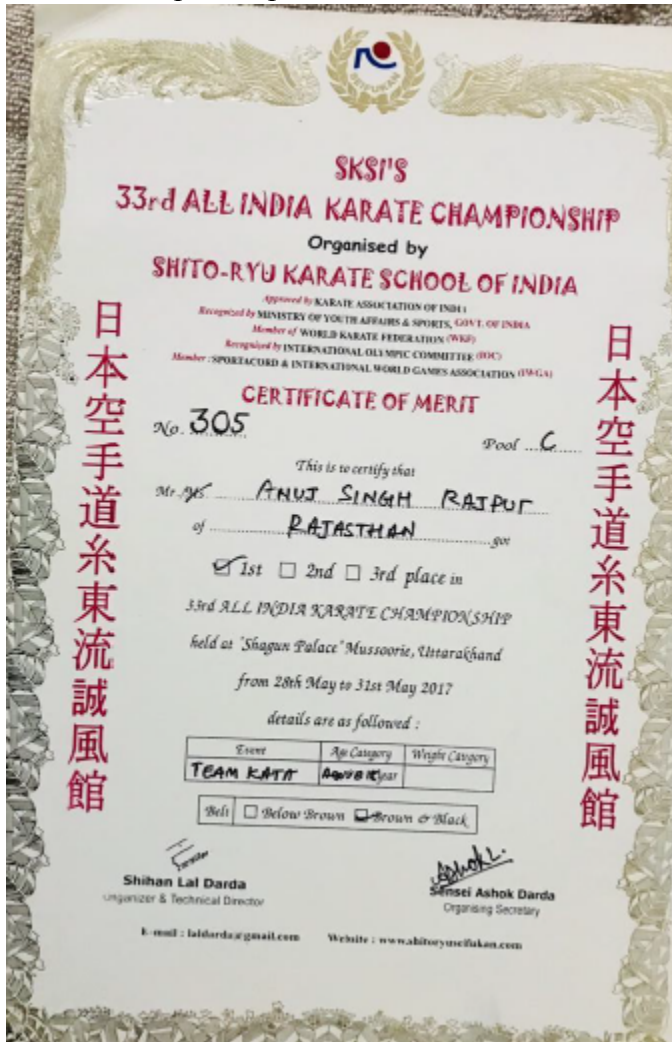 SEIFUKAN
SKSI'S
33rd ALL INDIA KARATE CHAMPIONSHIP
Organised by
SHITO-RYU KARATE SCHOOL OF INDIA
Approved by KARATE ASSOCIATION OF INDIA
Recognized by MINISTRY OF YOUTH AFFAIRS & SPORTS, GOVT. OF INDIA
Member of WORLD KARATE FEDERATION (WKF)
Recognized by INTERNATIONAL OLYMPIC COMMITTEE (IOC)
Member : SPORTACORD & INTERNATIONAL WORLD GAMES ASSOCIATION (IWGA)
CERTIFICATE OF MERIT
No. 305 Pool C
This is to certify that
Mr./Ms ANUJ SINGH RAJPUT
of RAJASTHAN got
1st 2nd 3rd place in
33rd ALL INDIA KARATE CHAMPIONSHIP
held at 'Shagun Palace' Mussoorie, Uttarakhand
from 28th May to 31st May 2017
details are as followed :
Event Age Category Weight Category
TEAM KATA year
Belt Below Brown Brown & Black
Shihan Lal Darda
Organizer & Technical Director
Sensei Ashok Darda
Organising Secretary
E-mail : laldarda@gmail.com Website : www.shitoryuseifukan.com
日本空手道糸東流誠風館
日本空手道糸東流誠風館